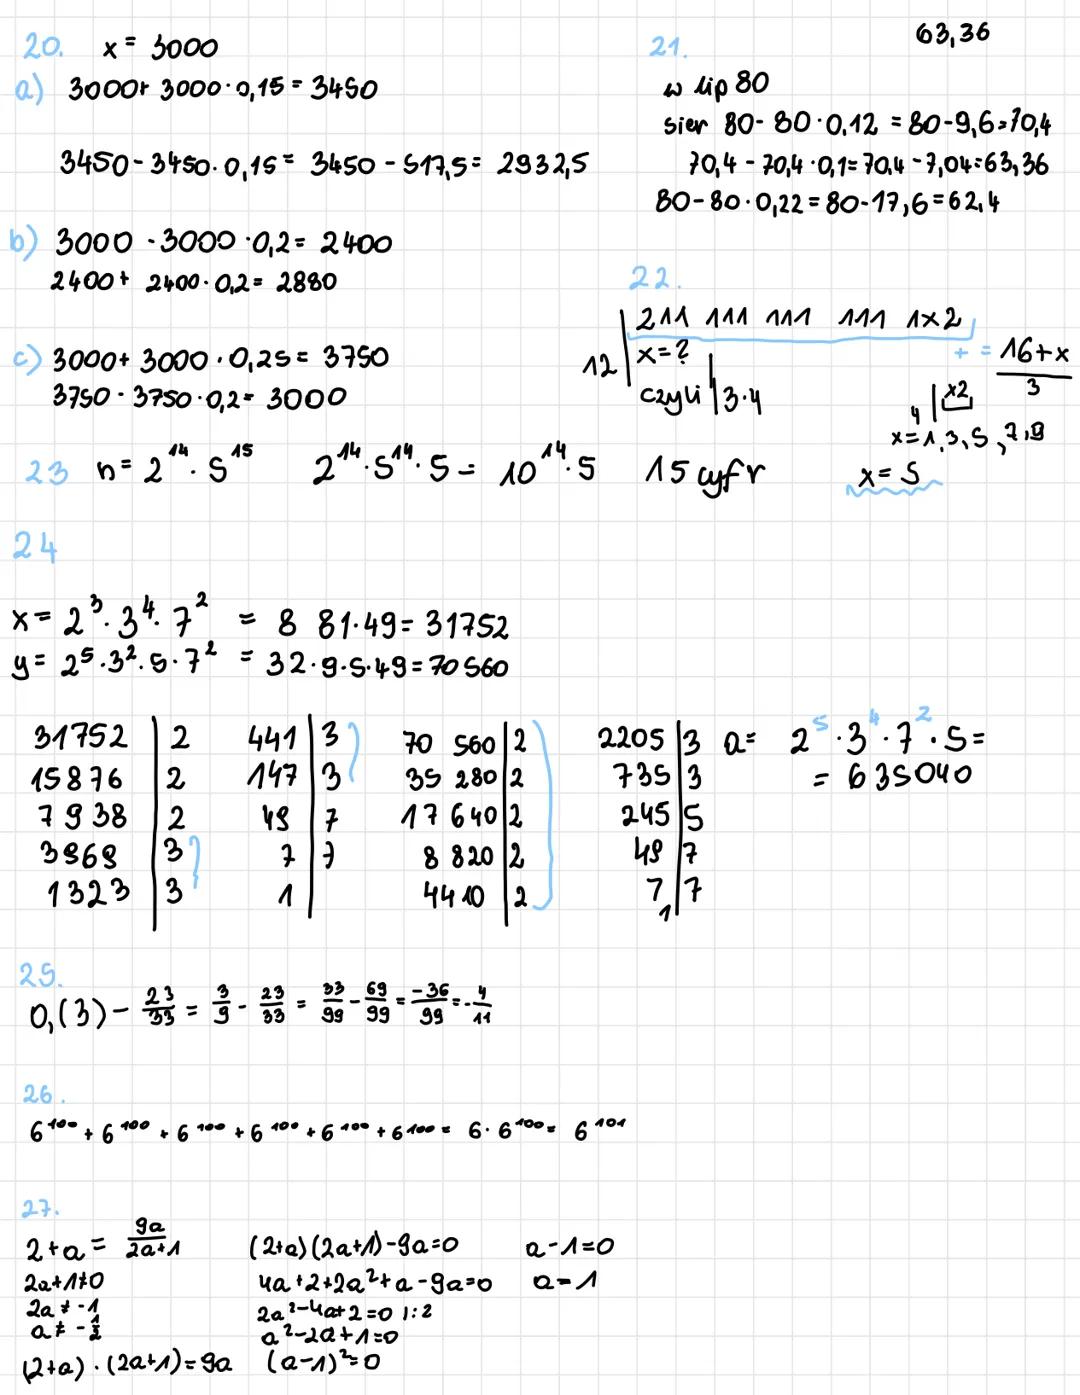 20. x = 3000
a) 3000 + 3000 · 0,15 = 3450
3450 - 3450 · 0,15 = 3450 - 517,5 = 2932,5
b) 3000 - 3000 · 0,2 = 2400
2400 + 2400 · 0,2 = 2880
c) 3000 + 3000 · 0,25 = 3750
3750 - 3750 · 0,2 = 3000
21. 63,36
w lip 80
sier 80 - 80 · 0,12 = 80 - 9,6 = 70,4
70,4 - 70,4 · 0,1 = 70,4 - 7,04 = 63,36
80 - 80 · 0,22 = 80 - 17,6 = 62,4
22.
12 | 211 111 111 111 1x2
x = ? + = 16+x / 3
czyli | 3·4 4 | x2
x = 1,3,5,7,9
x = 5
23 n = 2^14 · 5^15 2^14 · 5^14 · 5 = 10^14 · 5 15 cyfr
24
x = 2^3 · 3^4 · 7^2 = 8 81·49 = 31752
y = 2^5 · 3^2 · 5 · 7^2 = 32·9·5·49 = 70560
31752 | 2 441 | 3 70 560 | 2 2205 | 3 a = 2^5 · 3^4 · 7^2 · 5 =
15876 | 2 147 | 3 35 280 | 2 735 | 3 = 635040
7938 | 2 49 | 7 17 640 | 2 245 | 5
3969 | 3 7 | 7 8 820 | 2 49 | 7
1323 | 3 1 | 4410 | 2 7 | 7
1
25.
0,(3) - 23/33 = 3/9 - 23/33 = 33/99 - 69/99 = -36/99 = -4/11
26.
6^100 + 6^100 + 6^100 + 6^100 + 6^100 + 6^100 = 6 · 6^100 = 6^101
27.
2+a = 9a/2a+1
2a+1≠0
2a ≠ -1
a ≠ -1/2
(2+a) · (2a+1) = 9a
(2+a)(2a+1) - 9a = 0
4a+2+2a²+a-9a=0
2a²-4a+2=0 |:2
a²-2a+1=0
(a-1)²=0
a-1=0
a=1